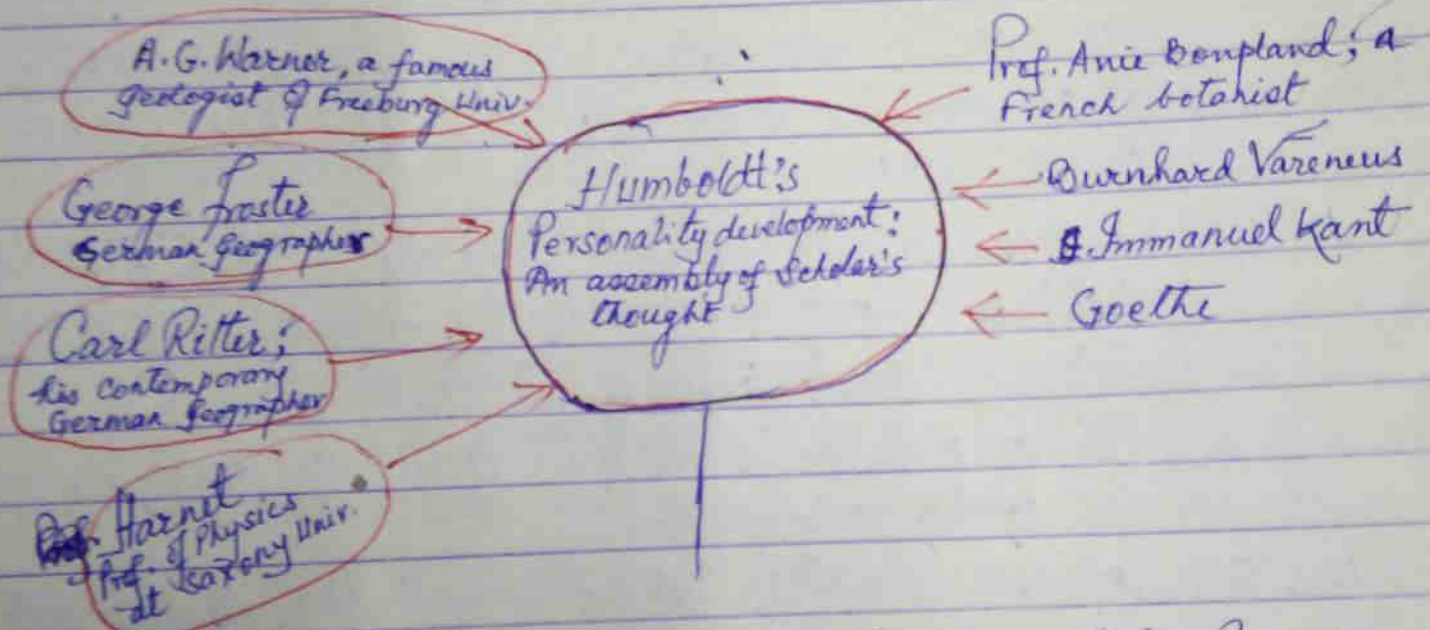 A.G. Warner, a famous
geologist of Freeburg Univ.
George Froster
German Geographer
Carl Ritter;
his contemporary
German Geographer
Prof. Harnet
Prof. of Physics
at Saxony Univ.
Humboldt's
Personality development:
An assembly of Scholar's
thought
Prof. Anie Bonpland; a
French botanist
Burnhard Vareneus
Immanuel Kant
Goethe